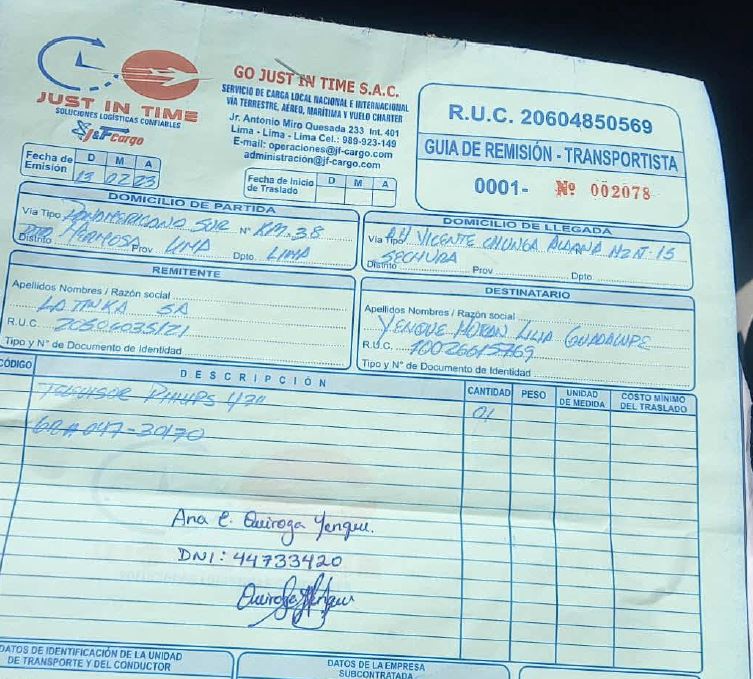 JUST IN TIME
SOLUCIONES LOGÍSTICAS CONFIABLES
J&F Cargo
GO JUST IN TIME S.A.C.
SERVICIO DE CARGA LOCAL NACIONAL E INTERNACIONAL
VÍA TERRESTRE, AÉREO, MARÍTIMA Y VUELO CHARTER
Jr. Antonio Miro Quesada 233 Int. 401
Lima - Lima - Lima Cel.: 989-923-149
E-mail: operaciones@jf-cargo.com
administración@jf-cargo.com
R.U.C. 20604850569
GUIA DE REMISIÓN - TRANSPORTISTA
0001- Nº 002078
Fecha de Emisión D M A
13 02 23
Fecha de Inicio de Traslado D M A
DOMICILIO DE PARTIDA
Vía Tipo Panamericana Sur Nº KM.38
Distrito Pta Hermosa Prov Lima Dpto. Lima
DOMICILIO DE LLEGADA
Vía Tipo AH Vicente Chunga Aldana Mz N-15
Sechura
Distrito Prov Dpto
REMITENTE
Apellidos Nombres / Razón social
La Tinka SA
R.U.C. 20506035121
Tipo y N° de Documento de Identidad
DESTINATARIO
Apellidos Nombres / Razón social
Yenque Lilia Guadalupe
R.U.C. 10026615769
Tipo y N° de Documento de Identidad
CÓDIGO DESCRIPCIÓN CANTIDAD PESO UNIDAD DE MEDIDA COSTO MÍNIMO DEL TRASLADO
Televisor Philips 47" 01
047-30170
Ana E. Quiroga Yenque.
DNI: 44733420
Quiroga Yenque
DATOS DE IDENTIFICACIÓN DE LA UNIDAD
DE TRANSPORTE Y DEL CONDUCTOR
DATOS DE LA EMPRESA
SUBCONTRATADA